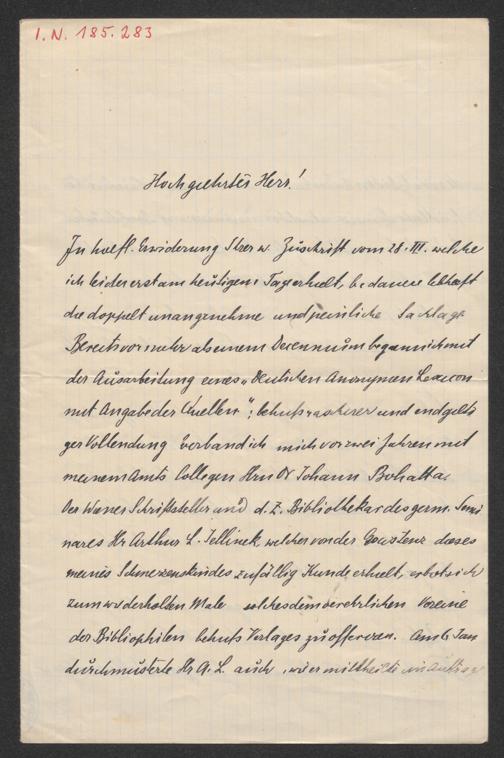 I.N. 185.283
Hochgeehrter Herr!
In hoefl. Erwiderung Ihrer w. Zuschrift vom 28. III. welche
ich leider erst am heutigen Tage erhielt, bedauere lebhaft
die doppelt unangenehme und peinliche Sachlage
Bereits vor mehr als einem Decennium begann ich mit
der Ausarbeitung eines „Deutschen Anonymen Lexicon
mit Angabe der Quellen"; behufs rascherer und endgilti
ger Vollendung verband ich mich vor zwei Jahren mit
meinem Amts Collegen Hrn Dr Johann Bohatta.
Der Wiener Schriftsteller und d. Z. Bibliothekar des germ. Semi
nares Hr Arthur L. Jellinek welcher von der Existenz dieses
meines Schmerzenskindes zufällig Kunde erhielt, erbot sich
zum wiederholten Male solches dem verehrlichen Vereine
der Bibliophilen behufs Verlages zu offeriren. Am 6 Jan
durchmusterte Hr A. L. auch, wie er mittheilte im Auftrage